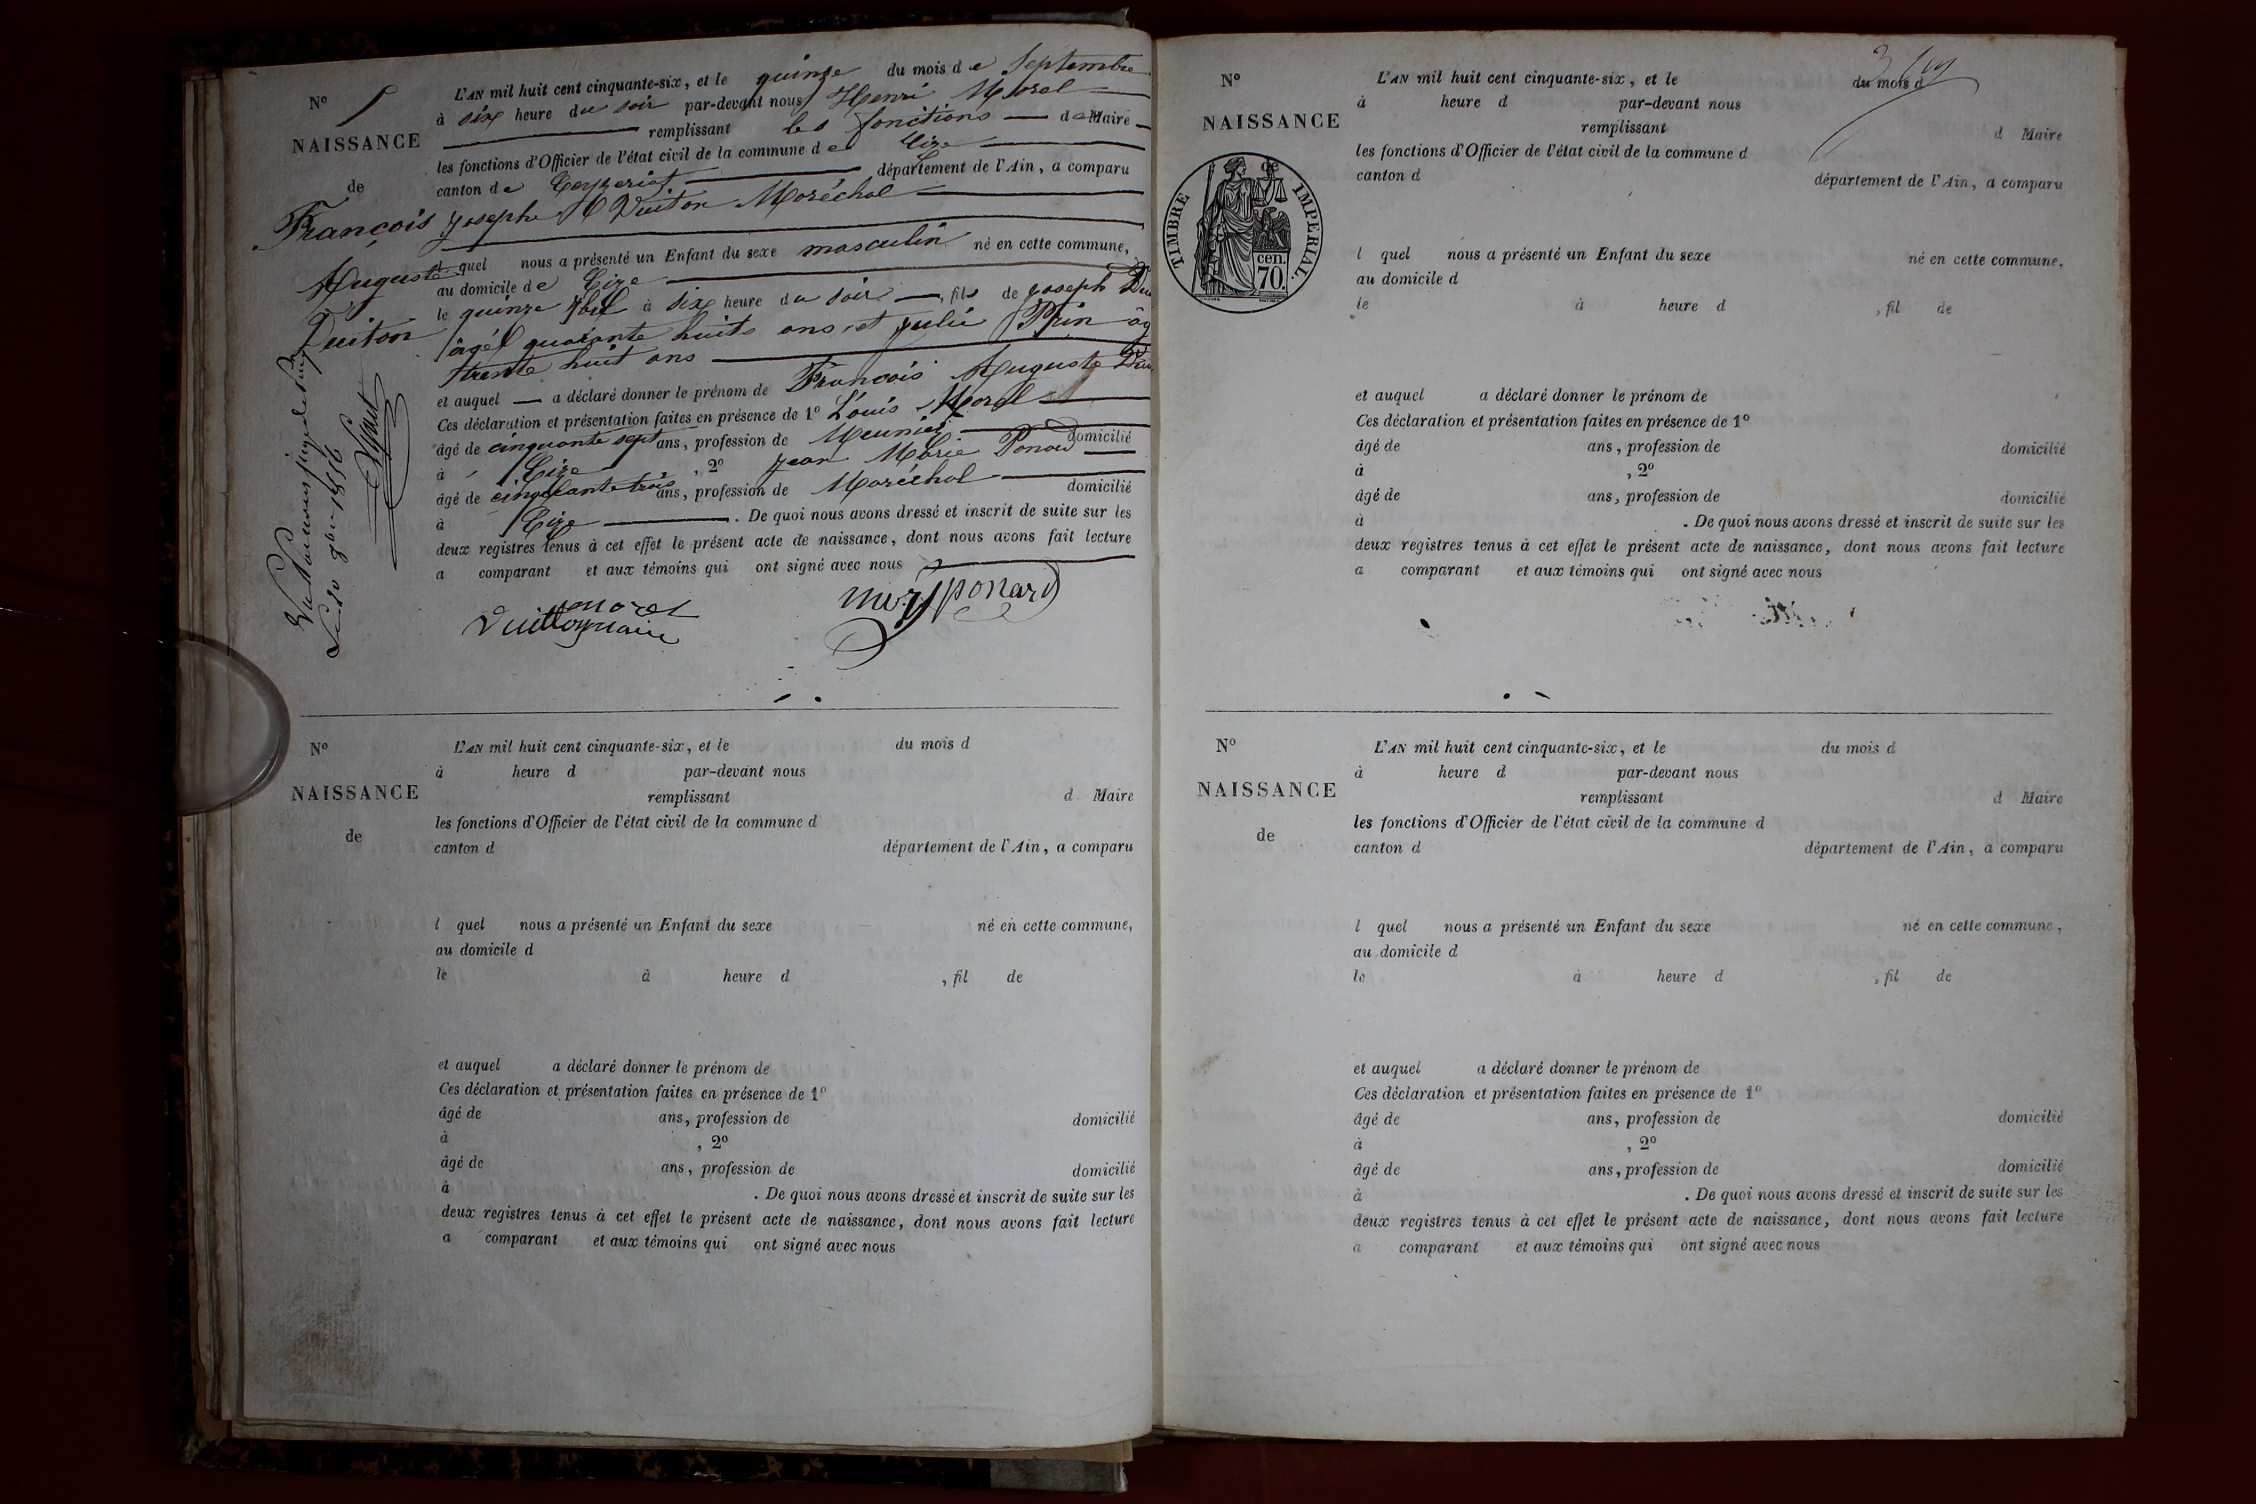 N° 5
NAISSANCE
de
François
Auguste
Duiton
L'AN mil huit cent cinquante-six, et le quinze du mois de Septembre
à six heure du soir par-devant nous Henri Morel
remplissant les fonctions de Maire
les fonctions d'Officier de l'état civil de la commune de Cize
canton de Ceyzeriat département de l'Ain, a comparu
Joseph Duiton Maréchal
lequel nous a présenté un Enfant du sexe masculin né en cette commune,
au domicile de Cize
le quinze 7bre à six heure du soir, fils de joseph
âgé quarante huits ans et julie Prin
trente huit ans
et auquel a déclaré donner le prénom de François Auguste
Ces déclaration et présentation faites en présence de 1° Louis Morel
âgé de cinquante sept ans, profession de Meunier domicilié
à Cize, 2° jean Marie Ponard
âgé de cinquante trois ans, profession de Maréchal domicilié
à Cize. De quoi nous avons dressé et inscrit de suite sur les
deux registres tenus à cet effet le présent acte de naissance, dont nous avons fait lecture
a comparant et aux témoins qui ont signé avec nous
morel
Duiton maire
ponard
1856
N°
NAISSANCE
de
L'AN mil huit cent cinquante-six, et le du mois d
à heure d par-devant nous
remplissant d Maire
les fonctions d'Officier de l'état civil de la commune d
canton d département de l'Ain, a comparu
l quel nous a présenté un Enfant du sexe né en cette commune,
au domicile d
le à heure d , fil de
et auquel a déclaré donner le prénom de
Ces déclaration et présentation faites en présence de 1°
âgé de ans, profession de domicilié
à , 2°
âgé de ans, profession de domicilié
à . De quoi nous avons dressé et inscrit de suite sur les
deux registres tenus à cet effet le présent acte de naissance, dont nous avons fait lecture
a comparant et aux témoins qui ont signé avec nous
N°
NAISSANCE
de
TIMBRE IMPERIAL.
cen.
70.
L'AN mil huit cent cinquante-six, et le du mois d
à heure d par-devant nous
remplissant d Maire
les fonctions d'Officier de l'état civil de la commune d
canton d département de l'Ain, a comparu
l quel nous a présenté un Enfant du sexe né en cette commune.
au domicile d
le à heure d , fil de
et auquel a déclaré donner le prénom de
Ces déclaration et présentation faites en présence de 1°
âgé de ans, profession de domicilié
à , 2°
âgé de ans, profession de domicilié
à . De quoi nous avons dressé et inscrit de suite sur les
deux registres tenus à cet effet le présent acte de naissance, dont nous avons fait lecture
a comparant et aux témoins qui ont signé avec nous
N°
NAISSANCE
de
L'AN mil huit cent cinquante-six, et le du mois d
à heure d par-devant nous
remplissant d Maire
les fonctions d'Officier de l'état civil de la commune d
canton d département de l'Ain, a comparu
l quel nous a présenté un Enfant du sexe né en cette commune,
au domicile d
le à heure d , fil de
et auquel a déclaré donner le prénom de
Ces déclaration et présentation faites en présence de 1°
âgé de ans, profession de domicilié
à , 2°
âgé de ans, profession de domicilié
à . De quoi nous avons dressé et inscrit de suite sur les
deux registres tenus à cet effet le présent acte de naissance, dont nous avons fait lecture
a comparant et aux témoins qui ont signé avec nous